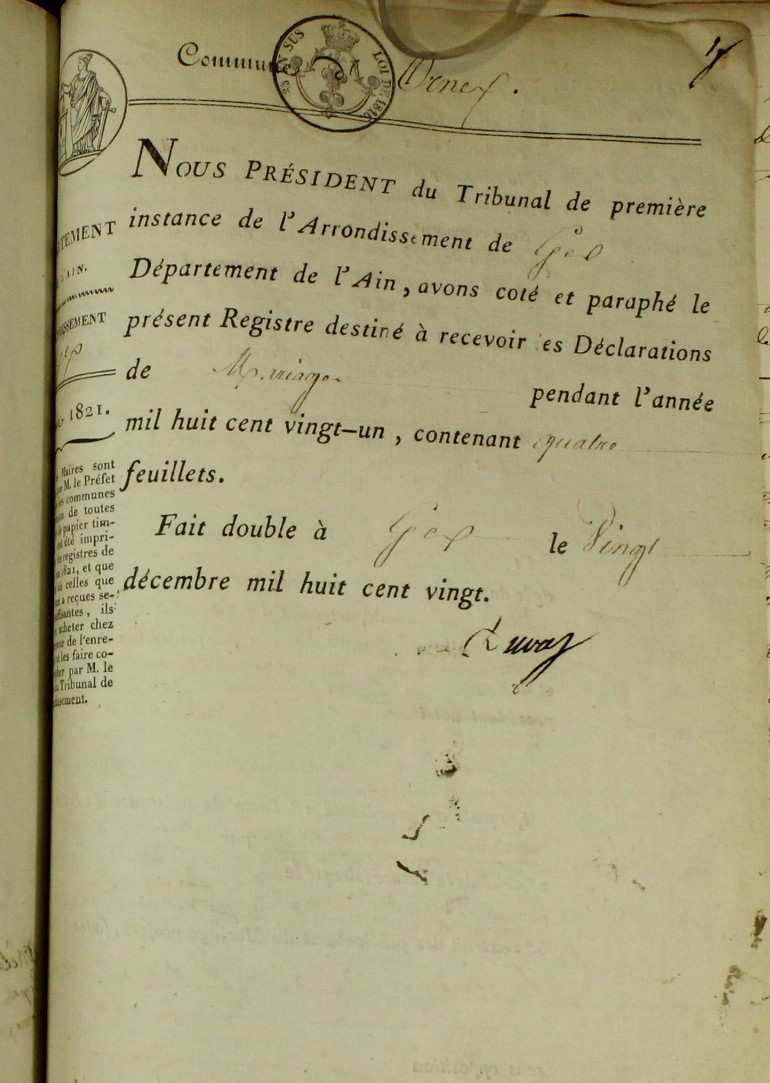 Commun Ornex.
EN SUS
LOI DE 1816
NOUS PRÉSIDENT du Tribunal de première
instance de l'Arrondissement de Gex
Département de l'Ain, avons coté et paraphé le
présent Registre destiné à recevoir les Déclarations
de Mariage pendant l'année
mil huit cent vingt-un, contenant quatre
feuillets.
Fait double à Gex le Vingt
décembre mil huit cent vingt.
TEMENT
AIN.
ISSEMENT
1821.
Maires sont
M. le Préfet
communes
de toutes
papier tim-
été impri-
registres de
1821, et que
celles que
reçues se-
santes, ils
acheter chez
de l'enre-
les faire co-
par M. le
Tribunal de
issement.